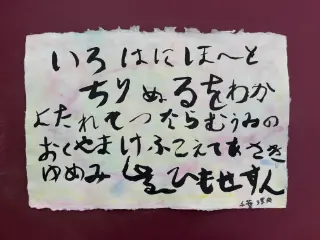 いろはにほへと
ちりぬるをわか
よたれそつねならむうゐの
おくやまけふこえてあさき
ゆめみしゑひもせすん